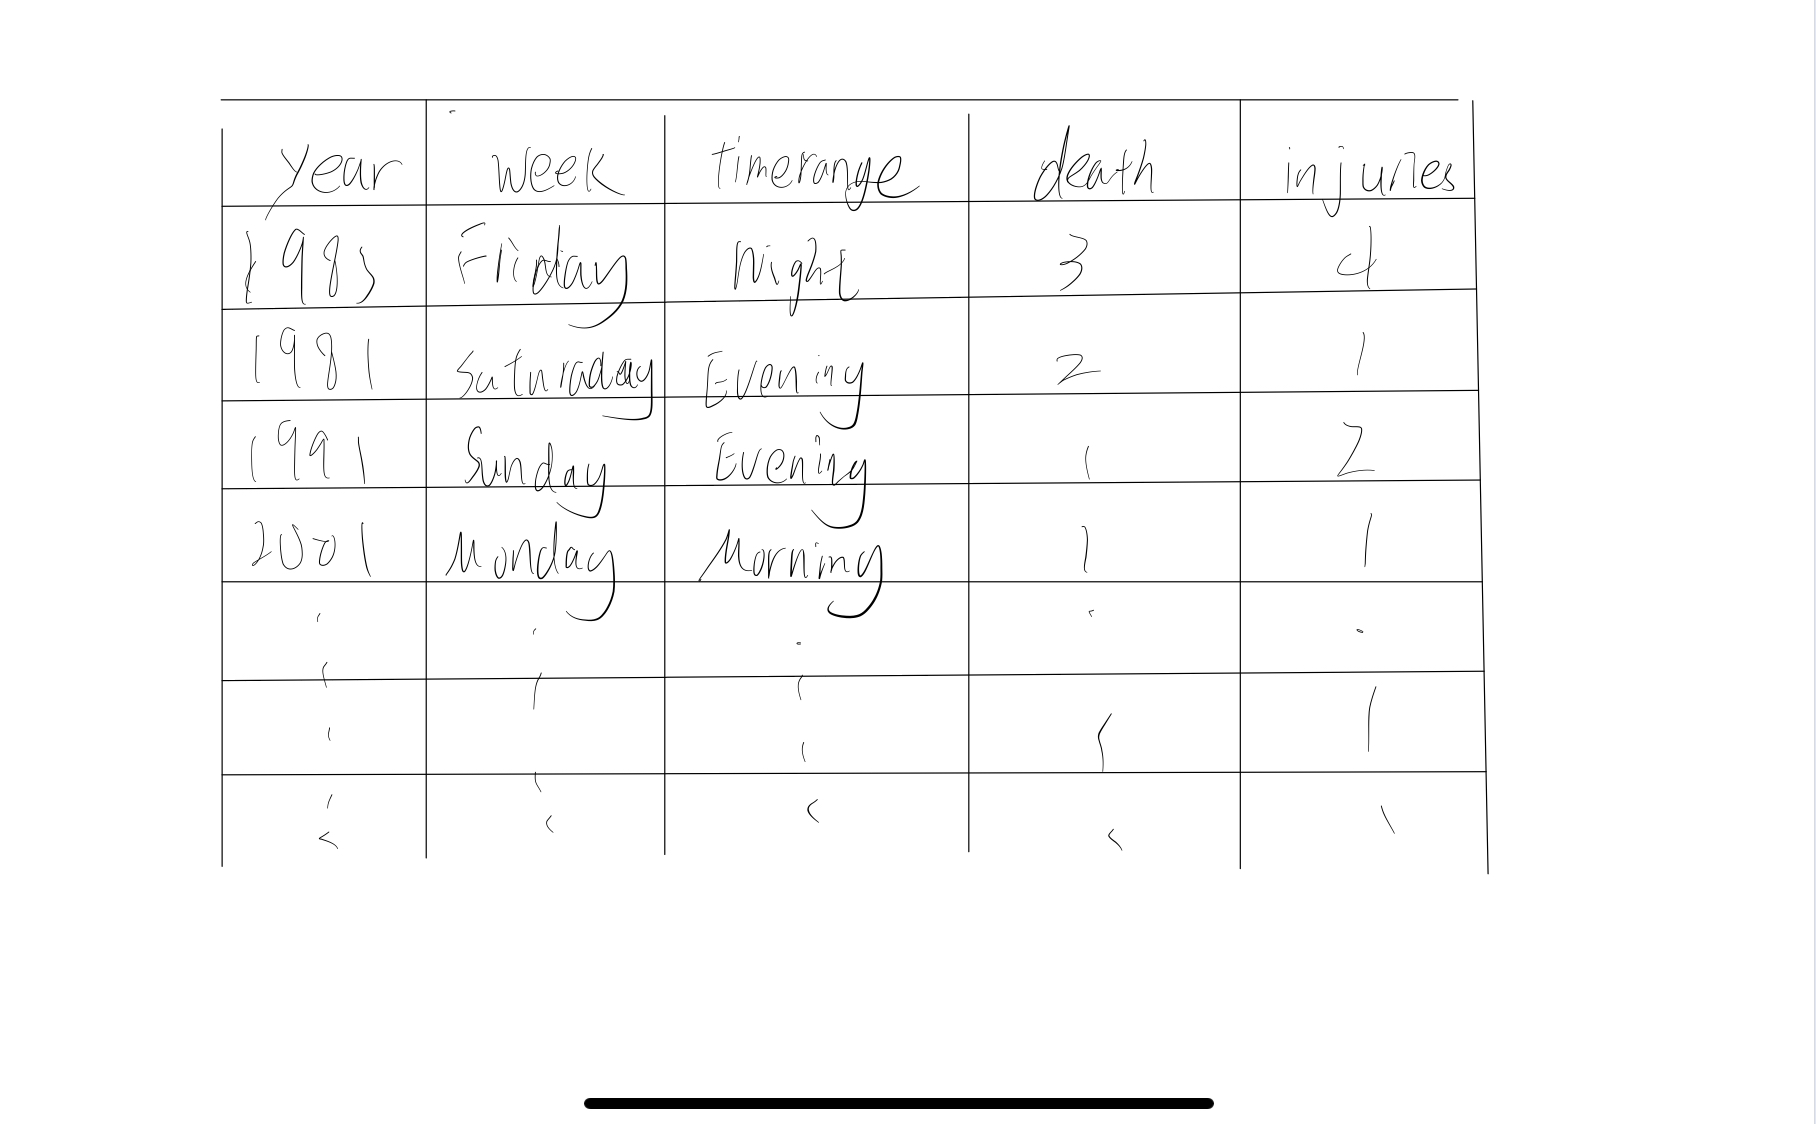 year week timerange death injuries
1981 Friday Night 3 4
1981 Saturaday Evening 2 1
1991 Sunday Evening 1 2
2001 Monday Morning 1 1